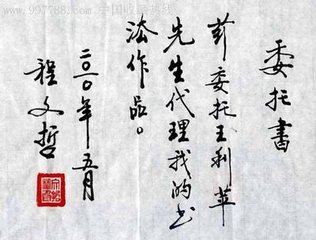 委托書
茲委托王利革
先生代理我的书
法作品。
二〇一〇年五月
程文哲
www.997788.com 中国收藏热线